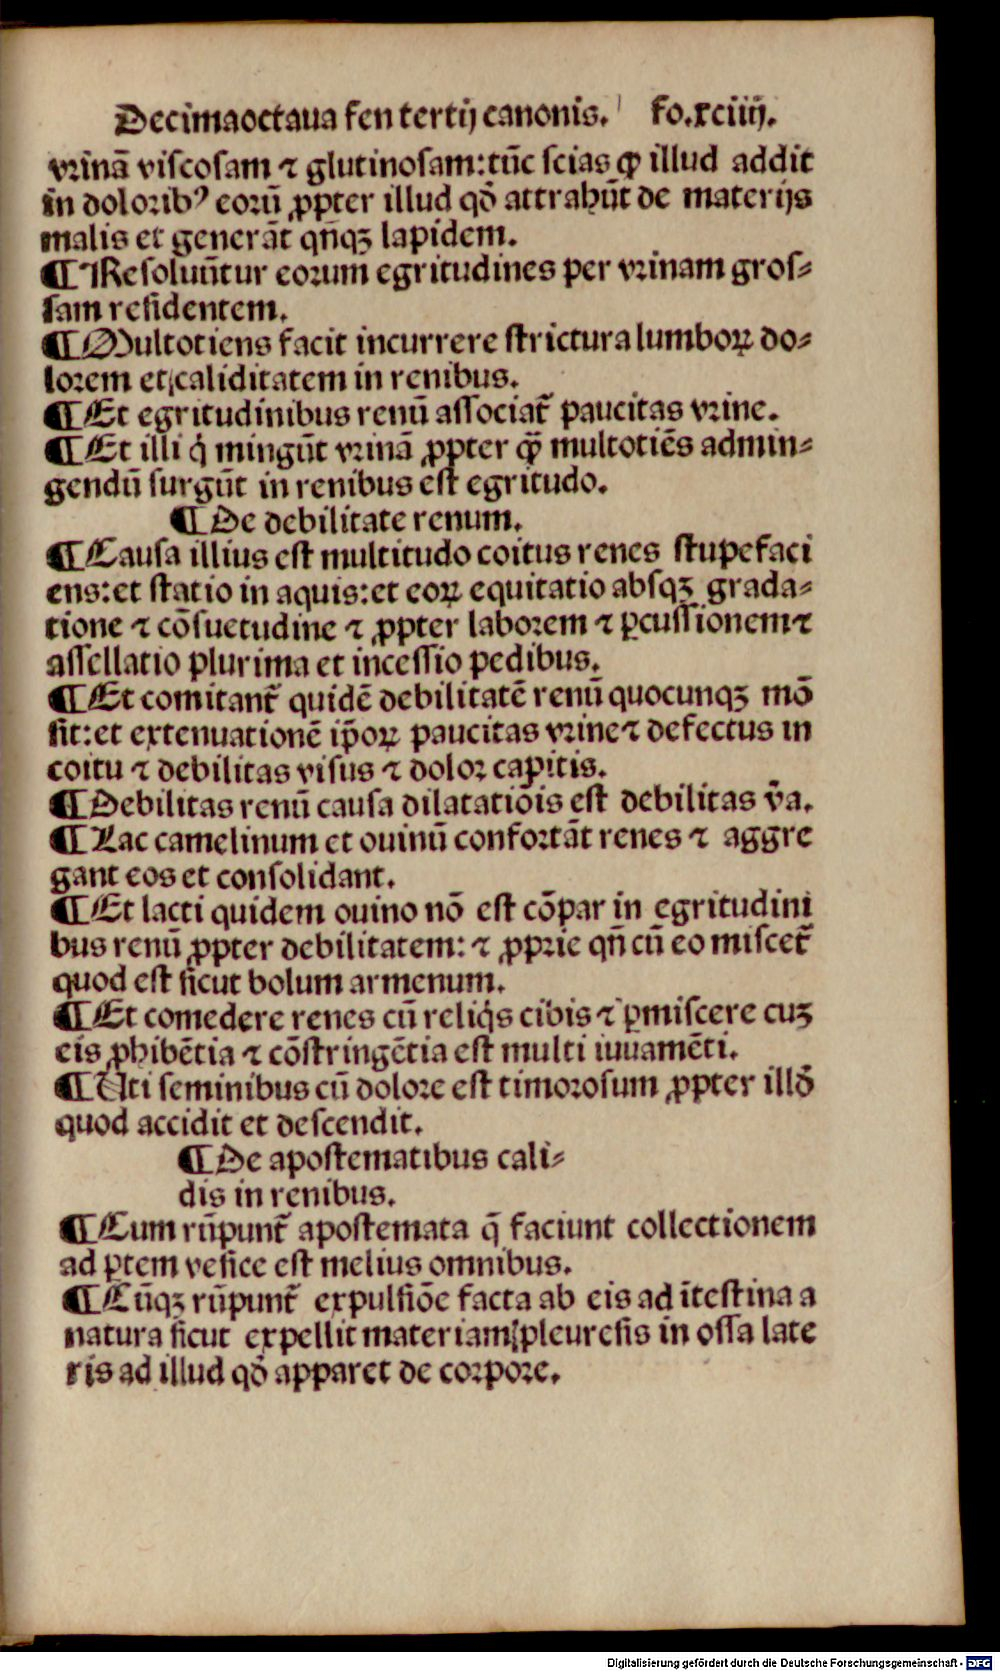 Decimaoctaua fen tertij canonis. fo.xciiij.
vrinā viscosam ⁊ glutinosam:tūc scias ꝙ illud addit
in doloribꝰ eorū ꝓpter illud qđ attrahūt de materijs
malis et generāt qn̄qꝫ lapidem.
¶ Resoluūtur eorum egritudines per vrinam gros⸗
sam residentem.
¶ Multotiens facit incurrere strictura lumboꝝ do⸗
lorem et caliditatem in renibus.
¶ Et egritudinibus renū associat᷑ paucitas vrine.
¶ Et illi q̇ mingūt vrinā ꝓpter ꝙ̄ multotiēs admin⸗
gendū surgūt in renibus est egritudo.
¶ De debilitate renum.
¶ Causa illius est multitudo coitus renes stupefaci
ens:et statio in aquis:et eoꝝ equitatio absqꝫ grada⸗
tione ⁊ cōsuetudine ⁊ ꝓpter laborem ⁊ ꝑcussionem⁊
assellatio plurima et incessio pedibus.
¶ Et comitant᷑ quidē debilitatē renū quocunqꝫ mō
sit:et extenuationē ip̄oꝝ paucitas vrine⁊ defectus in
coitu ⁊ debilitas visus ⁊ dolor capitis.
¶ Debilitas renū causa dilatatiōis est debilitas v̄a.
¶ Lac camelinum et ouinū confortāt renes ⁊ aggre
gant eos et consolidant.
¶ Et lacti quidem ouino nō est cōpar in egritudini
bus renū ꝓpter debilitatem: ⁊ ꝓprie qn̄ cū eo miscet᷑
quod est sicut bolum armenum.
¶ Et comedere renes cū reliq̇s cibis ⁊ ꝑmiscere cuꝫ
eis ꝓhibētia ⁊ cōstringētia est multi iuuamēti.
¶ Uti seminibus cū dolore est timorosum ꝓpter illđ
quod accidit et descendit.
¶ De apostematibus cali⸗
dis in renibus.
¶ Cum rūpunt᷑ apostemata q̄ faciunt collectionem
ad ꝑtem vesice est melius omnibus.
¶ Cūqꝫ rūpunt᷑ expulsiōe facta ab eis ad ītestina a
natura sicut expellit materiam pleuresis in ossa late
ris ad illud qđ apparet de corpore.
Digitalisierung gefördert durch die Deutsche Forschungsgemeinschaft - DFG